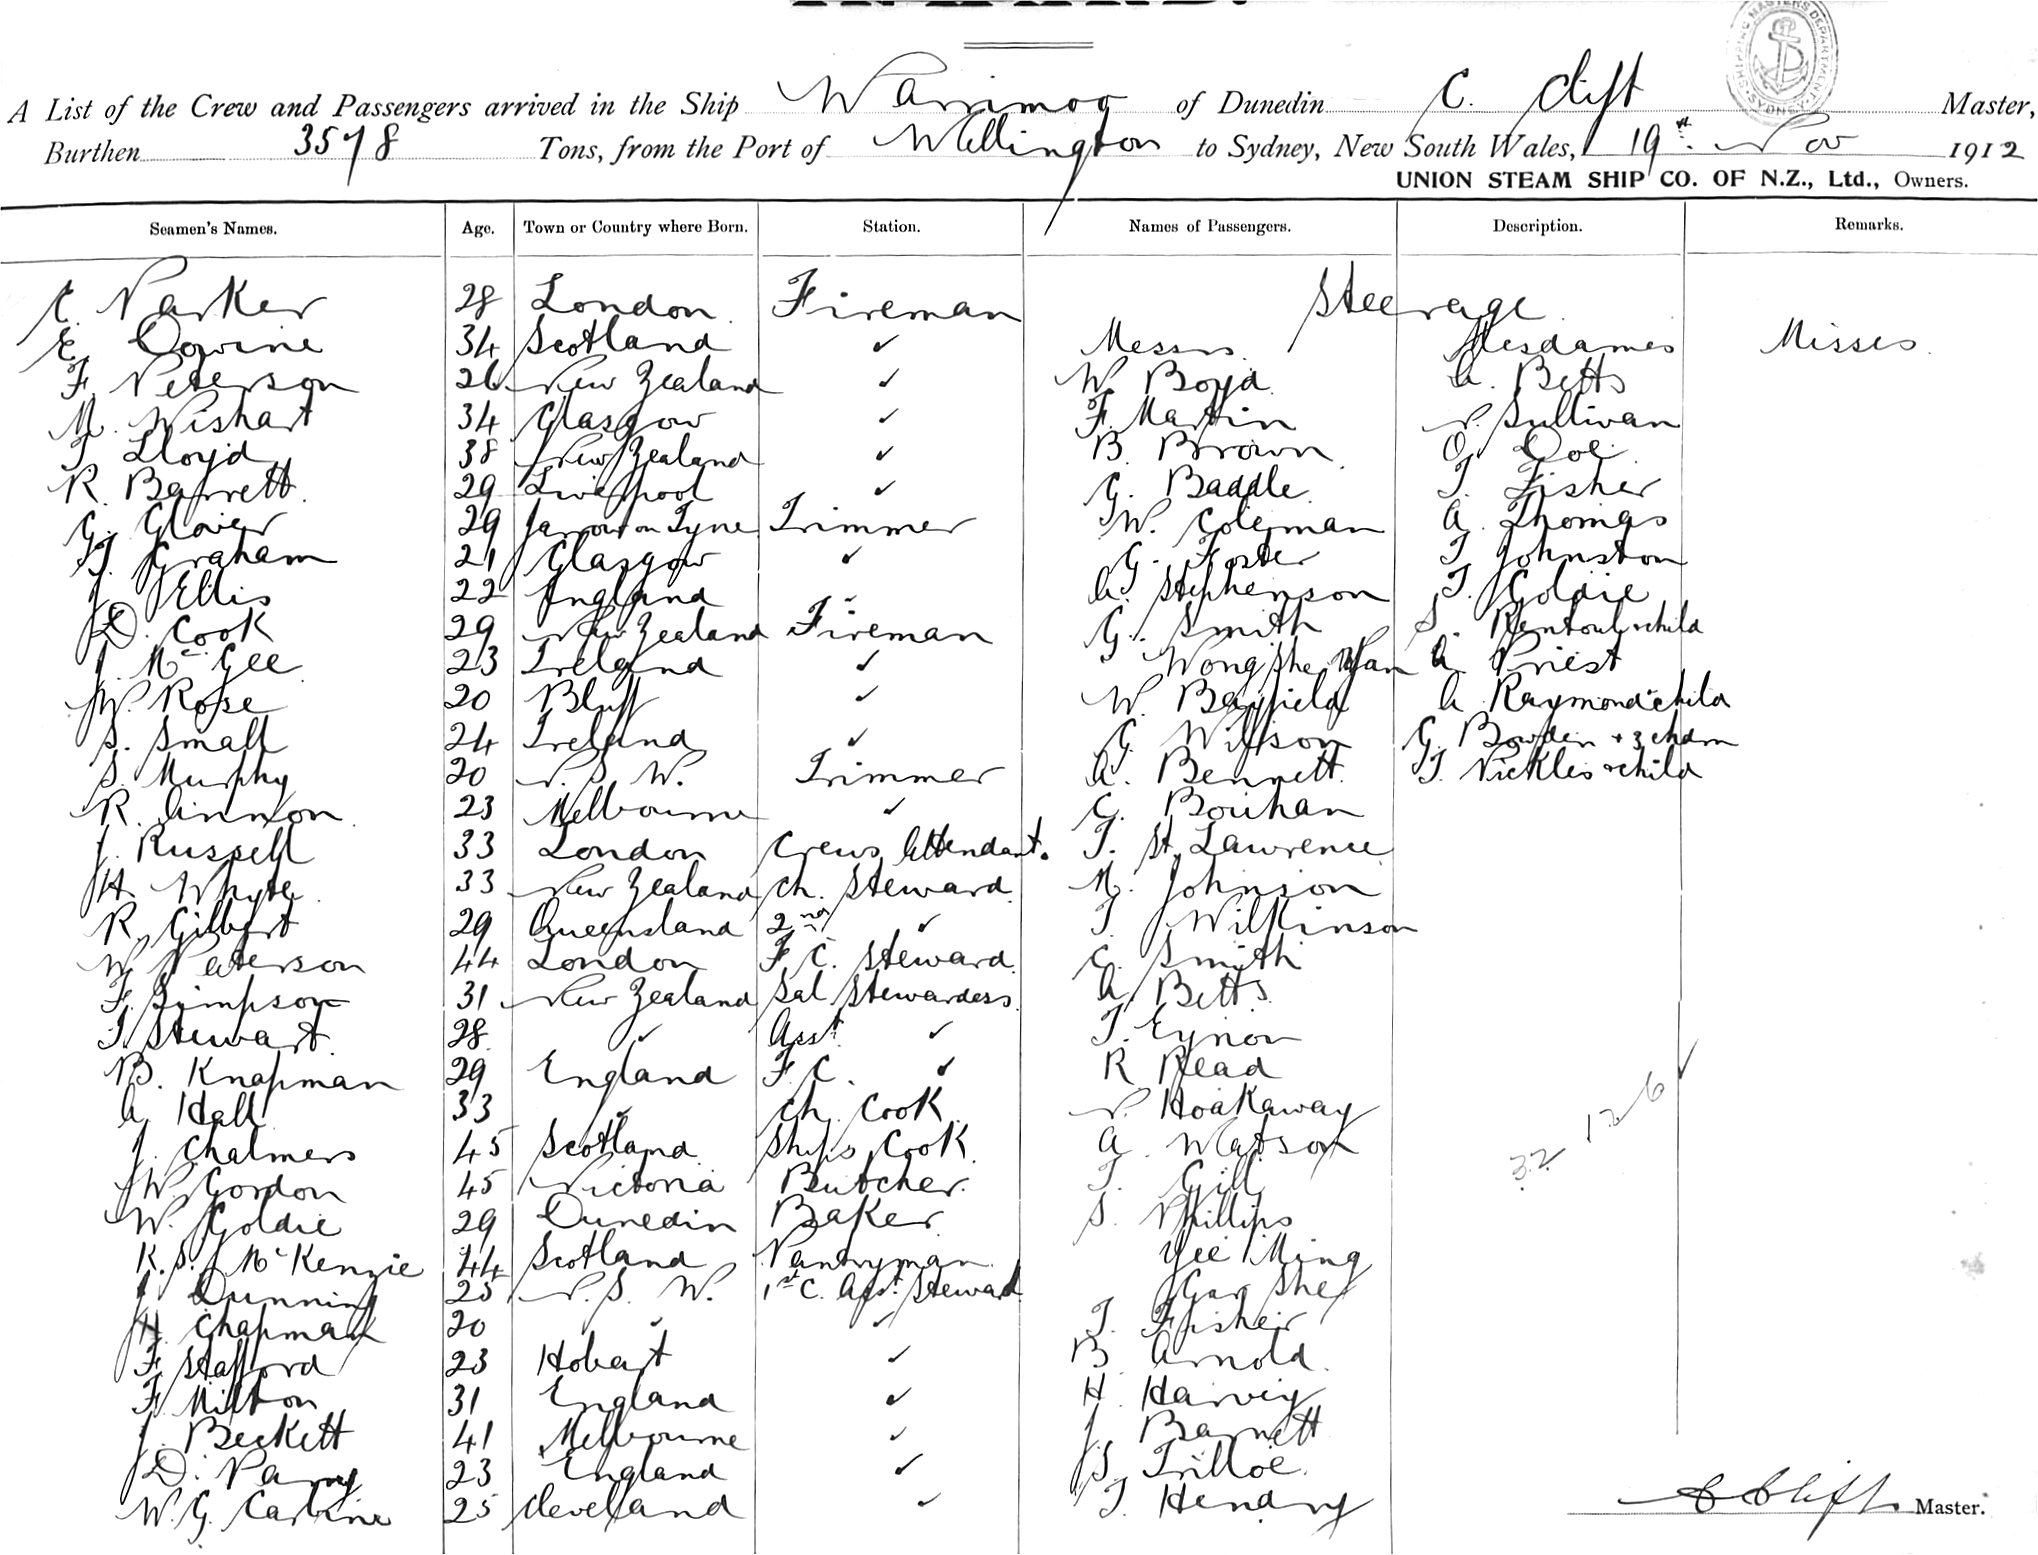 A List of the Crew and Passengers arrived in the Ship Warrimoo of Dunedin C. Clift Master,
Burthen 3578 Tons, from the Port of Wellington to Sydney, New South Wales, 19th Nov 1912
UNION STEAM SHIP CO. OF N.Z., Ltd., Owners.
Seamen's Names. Age. Town or Country where Born. Station. Names of Passengers. Description. Remarks.
C. Parker 28 London Fireman Steerage
E. Downie 34 Scotland ✓ Messrs. Mesdames Misses
F. Peterson 26 New Zealand ✓ W. Boyd A. Betts
M. Wishart 34 Glasgow ✓ F. Martin N. Sullivan
T. Lloyd 38 New Zealand ✓ B. Brown O. Doe
R. Barrett 29 Liverpool ✓ G. Baddle T. Fisher
G. Glover 29 Jarrow on Tyne Trimmer W. Coleman A. Thomas
T. Graham 21 Glasgow ✓ G. Foster T. Johnston
J. Ellis 22 England ✓ A. Stephenson T. Goldie
D. Cook 29 New Zealand Fireman G. Smith S. Rentoul & child
J. McGee 23 Ireland ✓ Wong She A. Priest
W. Rose 20 Bluff ✓ W. Bayfield A. Raymond & child
S. Small 24 Ireland ✓ G. Willson G. Bowden + 3 chdrn
S. Murphy 20 N. S. W. Trimmer A. Bennett T. Nickles & child
R. 23 Melbourne ✓ C. Bouhan
J. Russell 33 London Crews Attendant. T. St. Lawrence
H. Whyte 33 New Zealand Ch. Steward M. Johnson
R. Gilbert 29 Queensland 2nd ✓ T. Wilkinson
W. Peterson 44 London F. C. Steward C. Smith
F. Simpson 31 New Zealand Sal Stewardess A. Betts
T. Stewart 28 ✓ Asst ✓ T. Eynon
B. Knapman 29 England F. C. ✓ R Read
A. Hall 33 ✓ Ch. Cook N. Hoakaway
J. Chalmers 45 Scotland Ships Cook A. Watson
W. Gordon 45 Victoria Butcher T. Gill
W. Goldie 29 Dunedin Baker S. Phillips
R. S. McKenzie 44 Scotland Pantryman Yee Ming
J. Dunning 25 N. S. W. 1st C. Asst Steward Gar She
H. Chapman 20 ✓ ✓ T. Fisher
F. Stafford 23 Hobart ✓ B Arnold
F. Milton 31 England ✓ H. Harvey
J. Beckett 41 Melbourne ✓ J. Barnett
D. Parry 23 England ✓ S. Trilloe
W. G. 25 Cleveland ✓ T. Hendry
32 12 6
C Clift Master.